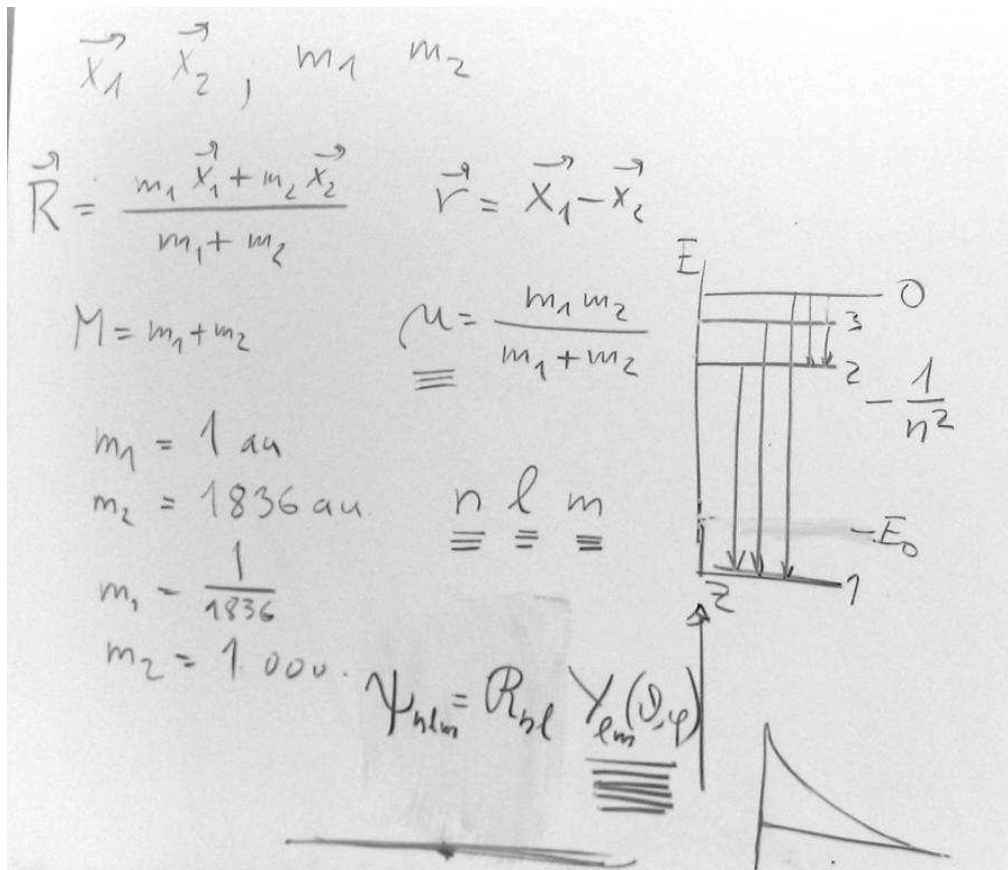 x⃗₁ x⃗₂, m₁ m₂
R⃗ = (m₁ x⃗₁ + m₂ x⃗₂) / (m₁ + m₂)
r⃗ = x⃗₁ − x⃗₂
M = m₁ + m₂
μ = (m₁ m₂) / (m₁ + m₂)
m₁ = 1 au
m₂ = 1836 au
m₁ − 1/1836
m₂ = 1.000.
n l m
ψₙₗₘ = Rₙₗ Yₗₘ(ϑ,φ)
E
0
3
2
− 1/n²
−E₀
1
z